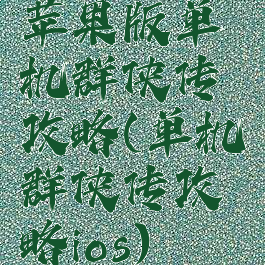 苹果版单
机群侠传
攻略(单机
群侠传攻
略ios)